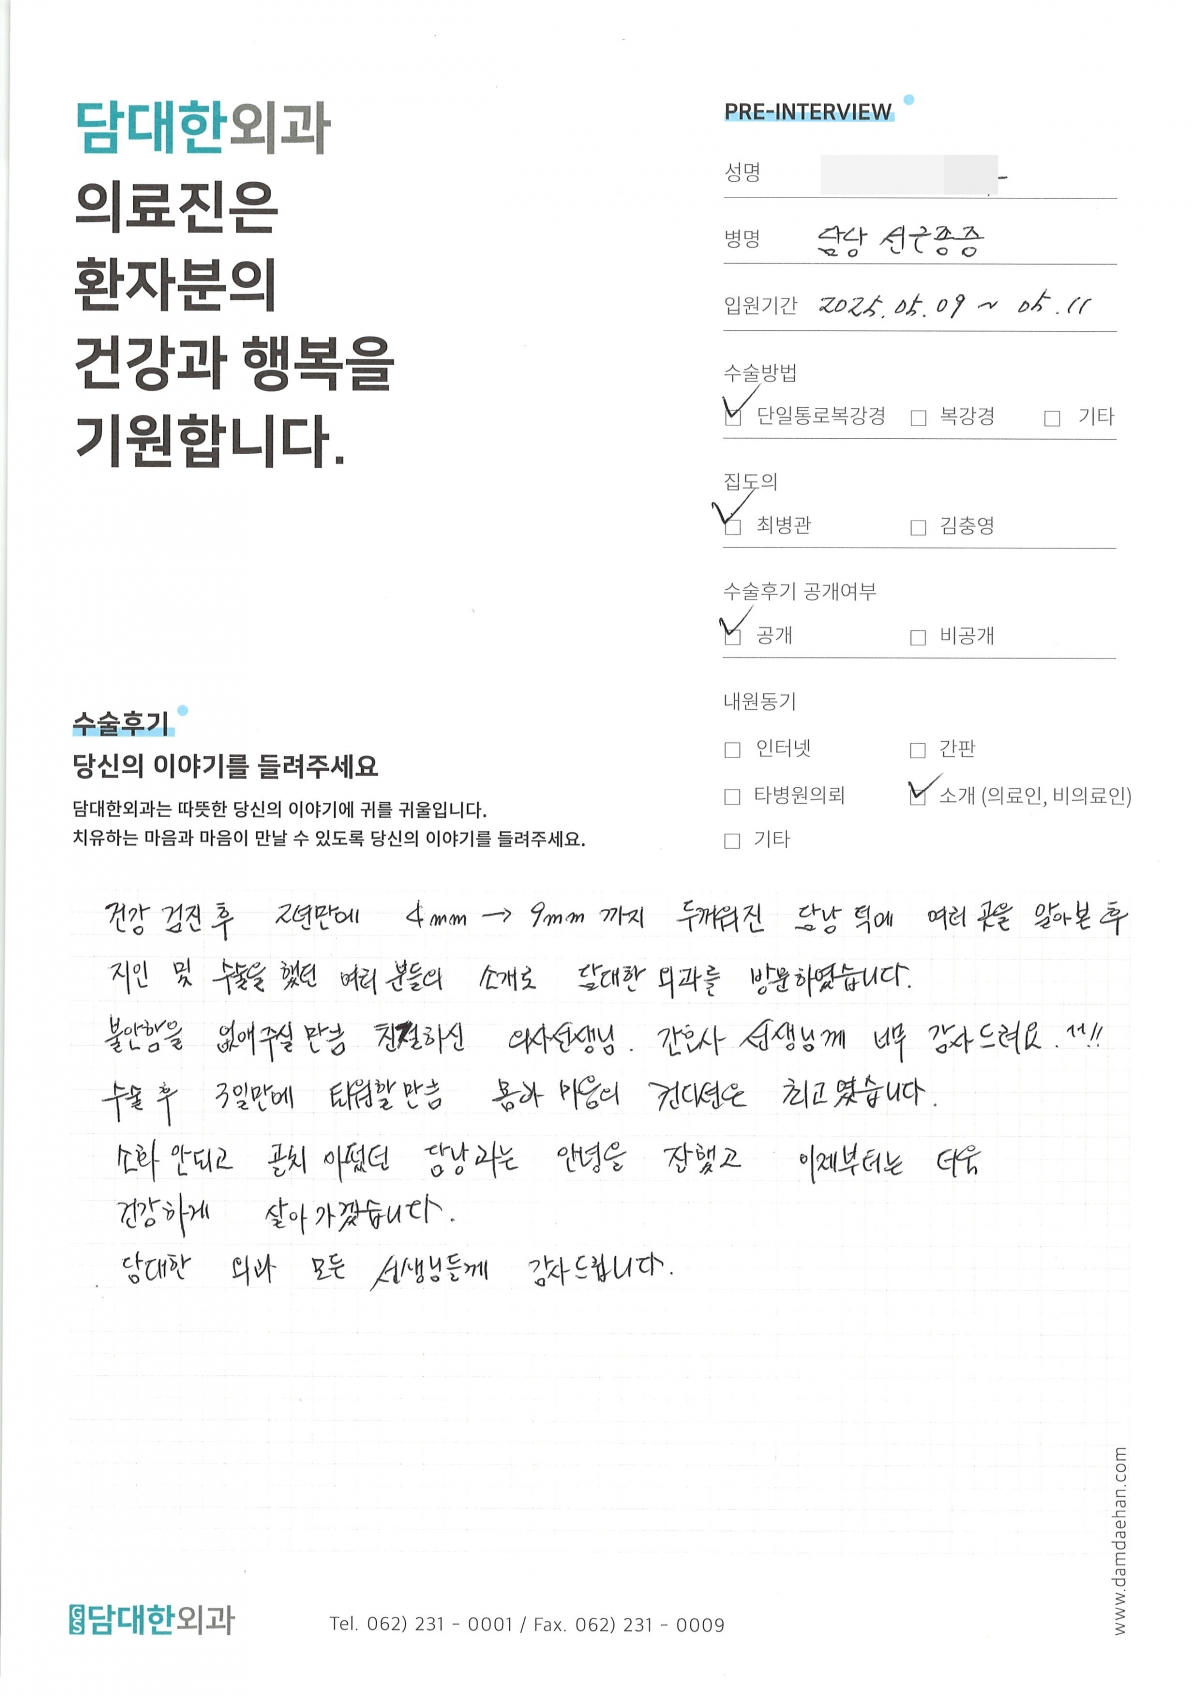 담대한외과
의료진은
환자분의
건강과 행복을
기원합니다.
PRE-INTERVIEW
성명
병명 담낭 선근종증
입원기간 2025.05.09 ~ 05.11
수술방법
단일통로복강경 복강경 기타
집도의
최병관 김충영
수술후기 공개여부
공개 비공개
내원동기
인터넷 간판
타병원의뢰 소개 (의료인, 비의료인)
기타
수술후기
당신의 이야기를 들려주세요
담대한외과는 따뜻한 당신의 이야기에 귀를 귀울입니다.
치유하는 마음과 마음이 만날 수 있도록 당신의 이야기를 들려주세요.
건강 검진 후 2년만에 4mm → 9mm 까지 두꺼워진 담낭 벽에 여러 곳을 알아본 후
지인 및 수술을 했던 여러 분들의 소개로 담대한 외과를 방문하였습니다.
불안함을 없애주실 만큼 친절하신 의사선생님. 간호사 선생님께 너무 감사드려요. ^^!!
수술 후 3일만에 퇴원할 만큼 몸과 마음의 컨디션은 최고였습니다.
소화 안되고 골치 아팠던 담낭과는 안녕을 잘했고 이제부터는 더욱
건강하게 살아가겠습니다.
담대한 외과 모든 선생님들께 감사드립니다.
GS담대한외과
Tel. 062) 231 - 0001 / Fax. 062) 231 - 0009
www.damdaehan.com